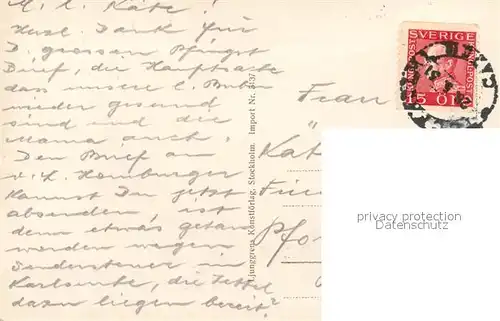 M. l. Käte!
Herzl. Dank für
D. grossen Pfingst
Brief, die Hauptsache
dass unsere l. Buben
wieder gesund
sind und die
Mama auch.
Den Brief an
v. L. Homburger
kannst Du jetzt
absenden, ist
denn etwas getan
worden wegen
Sondersteuer in
Karlsruhe, die Zettel
dazu liegen bereit?
Ljunggrens Konstförlag, Stockholm. Import Nr.
SVERIGE
15 ÖRE
Frau
Kät
Pfo
privacy protection
Datenschutz